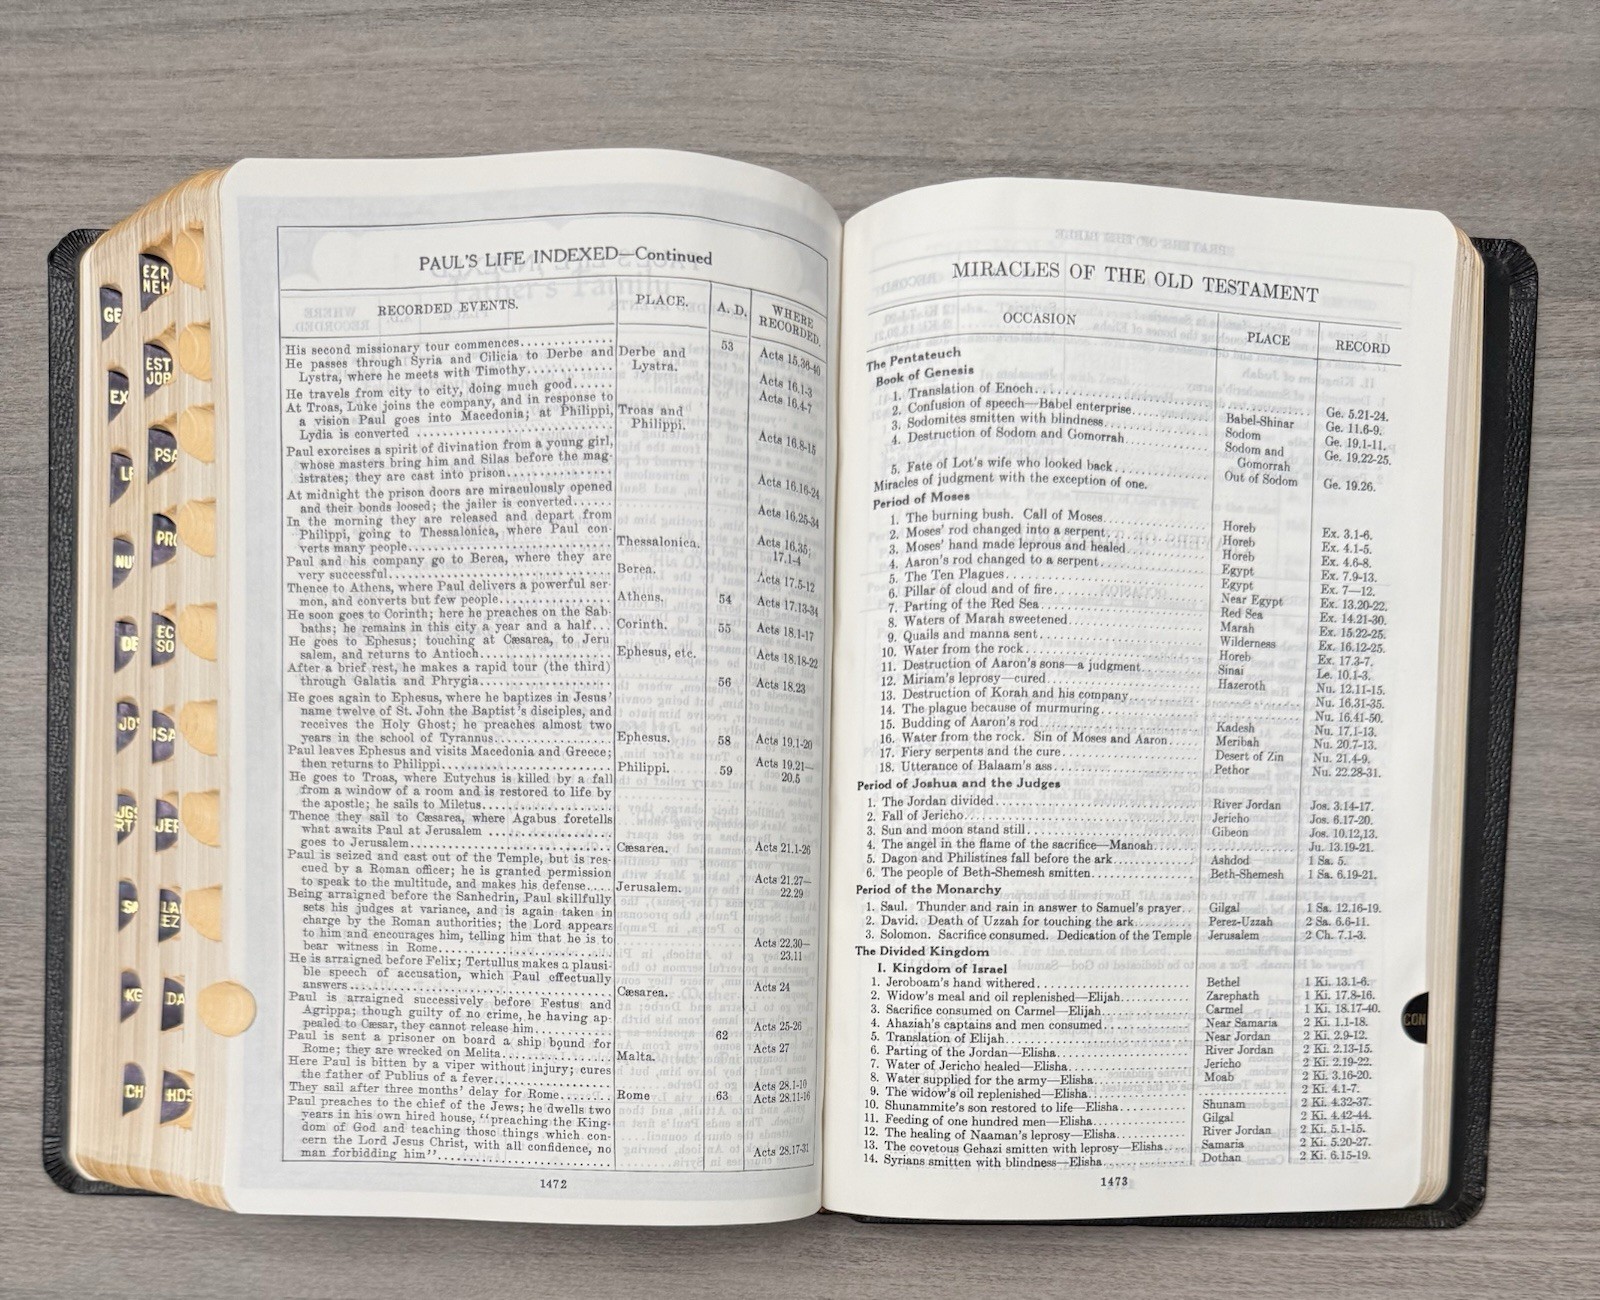 GE
EX
LE
NU
DE
JOS
JGS
RT
SA
KG
CH
EZR
NEH
EST
JOB
PSA
PRO
EC
SO
ISA
JER
LA
EZ
DA
HOS
PAUL'S LIFE INDEXED—Continued
RECORDED EVENTS. PLACE. A. D. WHERE RECORDED.
His second missionary tour commences 53 Acts 15.36-40
He passes through Syria and Cilicia to Derbe and Derbe and
Lystra, where he meets with Timothy Lystra. Acts 16.1-3
He travels from city to city, doing much good Acts 16.4-7
At Troas, Luke joins the company, and in response to Troas and
a vision Paul goes into Macedonia; at Philippi, Philippi.
Lydia is converted Acts 16.8-15
Paul exorcises a spirit of divination from a young girl,
whose masters bring him and Silas before the mag-
istrates; they are cast into prison Acts 16.16-24
At midnight the prison doors are miraculously opened
and their bonds loosed; the jailer is converted Acts 16.25-34
In the morning they are released and depart from
Philippi, going to Thessalonica, where Paul con- Thessalonica. Acts 16.35;
verts many people 17.1-4
Paul and his company go to Berea, where they are Berea.
very successful Acts 17.5-12
Thence to Athens, where Paul delivers a powerful ser-
mon, and converts but few people Athens. 54 Acts 17.13-34
He soon goes to Corinth; here he preaches on the Sab-
baths; he remains in this city a year and a half Corinth. 55 Acts 18.1-17
He goes to Ephesus; touching at Cæsarea, to Jeru
salem, and returns to Antioch Ephesus, etc. Acts 18.18-22
After a brief rest, he makes a rapid tour (the third)
through Galatia and Phrygia 56 Acts 18.23
He goes again to Ephesus, where he baptizes in Jesus'
name twelve of St. John the Baptist's disciples, and
receives the Holy Ghost; he preaches almost two
years in the school of Tyrannus Ephesus. 58 Acts 19.1-20
Paul leaves Ephesus and visits Macedonia and Greece;
then returns to Philippi Philippi. 59 Acts 19.21—
20.5
He goes to Troas, where Eutychus is killed by a fall
from a window of a room and is restored to life by
the apostle; he sails to Miletus
Thence they sail to Cæsarea, where Agabus foretells
what awaits Paul at Jerusalem
goes to Jerusalem Cæsarea. Acts 21.1-26
Paul is seized and cast out of the Temple, but is res-
cued by a Roman officer; he is granted permission
to speak to the multitude, and makes his defense Jerusalem. Acts 21.27—
22.29
Being arraigned before the Sanhedrin, Paul skillfully
sets his judges at variance, and is again taken in
charge by the Roman authorities; the Lord appears
to him and encourages him, telling him that he is to
bear witness in Rome Acts 22.30—
23.11
He is arraigned before Felix; Tertullus makes a plausi-
ble speech of accusation, which Paul effectually
answers Cæsarea. Acts 24
Paul is arraigned successively before Festus and
Agrippa; though guilty of no crime, he having ap-
pealed to Cæsar, they cannot release him Acts 25-26
Paul is sent a prisoner on board a ship bound for 62
Rome; they are wrecked on Melita Malta. Acts 27
Here Paul is bitten by a viper without injury; cures
the father of Publius of a fever Acts 28.1-10
They sail after three months' delay for Rome Rome 63 Acts 28.11-16
Paul preaches to the chief of the Jews; he dwells two
years in his own hired house, "preaching the King-
dom of God and teaching those things which con-
cern the Lord Jesus Christ, with all confidence, no
man forbidding him" Acts 28.17-31
1472
MIRACLES OF THE OLD TESTAMENT
OCCASION PLACE RECORD
The Pentateuch
Book of Genesis
1. Translation of Enoch Ge. 5.21-24.
2. Confusion of speech—Babel enterprise Babel-Shinar Ge. 11.6-9.
3. Sodomites smitten with blindness Sodom Ge. 19.1-11.
4. Destruction of Sodom and Gomorrah Sodom and Gomorrah Ge. 19.22-25.
5. Fate of Lot's wife who looked back Out of Sodom Ge. 19.26.
Miracles of judgment with the exception of one.
Period of Moses
1. The burning bush. Call of Moses Horeb Ex. 3.1-6.
2. Moses' rod changed into a serpent Horeb Ex. 4.1-5.
3. Moses' hand made leprous and healed Horeb Ex. 4.6-8.
4. Aaron's rod changed to a serpent Egypt Ex. 7.9-13.
5. The Ten Plagues Egypt Ex. 7—12.
6. Pillar of cloud and of fire Near Egypt Ex. 13.20-22.
7. Parting of the Red Sea Red Sea Ex. 14.21-30.
8. Waters of Marah sweetened Marah Ex. 15.22-25.
9. Quails and manna sent Wilderness Ex. 16.12-25.
10. Water from the rock Horeb Ex. 17.3-7.
11. Destruction of Aaron's sons—a judgment Sinai Le. 10.1-3.
12. Miriam's leprosy—cured Hazeroth Nu. 12.11-15.
13. Destruction of Korah and his company Nu. 16.31-35.
14. The plague because of murmuring Nu. 16.41-50.
15. Budding of Aaron's rod Kadesh Nu. 17.1-13.
16. Water from the rock. Sin of Moses and Aaron Meribah Nu. 20.7-13.
17. Fiery serpents and the cure Desert of Zin Nu. 21.4-9.
18. Utterance of Balaam's ass Pethor Nu. 22.28-31.
Period of Joshua and the Judges
1. The Jordan divided River Jordan Jos. 3.14-17.
2. Fall of Jericho Jericho Jos. 6.17-20.
3. Sun and moon stand still Gibeon Jos. 10.12,13.
4. The angel in the flame of the sacrifice—Manoah Ju. 13.19-21.
5. Dagon and Philistines fall before the ark Ashdod 1 Sa. 5.
6. The people of Beth-Shemesh smitten Beth-Shemesh 1 Sa. 6.19-21.
Period of the Monarchy
1. Saul. Thunder and rain in answer to Samuel's prayer Gilgal 1 Sa. 12.16-19.
2. David. Death of Uzzah for touching the ark Perez-Uzzah 2 Sa. 6.6-11.
3. Solomon. Sacrifice consumed. Dedication of the Temple Jerusalem 2 Ch. 7.1-3.
The Divided Kingdom
I. Kingdom of Israel
1. Jeroboam's hand withered Bethel 1 Ki. 13.1-6.
2. Widow's meal and oil replenished—Elijah Zarephath 1 Ki. 17.8-16.
3. Sacrifice consumed on Carmel—Elijah Carmel 1 Ki. 18.17-40.
4. Ahaziah's captains and men consumed Near Samaria 2 Ki. 1.1-18.
5. Translation of Elijah Near Jordan 2 Ki. 2.9-12.
6. Parting of the Jordan—Elisha River Jordan 2 Ki. 2.13-15.
7. Water of Jericho healed—Elisha Jericho 2 Ki. 2.19-22.
8. Water supplied for the army—Elisha Moab 2 Ki. 3.16-20.
9. The widow's oil replenished—Elisha 2 Ki. 4.1-7.
10. Shunammite's son restored to life—Elisha Shunam 2 Ki. 4.32-37.
11. Feeding of one hundred men—Elisha Gilgal 2 Ki. 4.42-44.
12. The healing of Naaman's leprosy—Elisha River Jordan 2 Ki. 5.1-15.
13. The covetous Gehazi smitten with leprosy—Elisha Samaria 2 Ki. 5.20-27.
14. Syrians smitten with blindness—Elisha Dothan 2 Ki. 6.15-19.
1473
CON